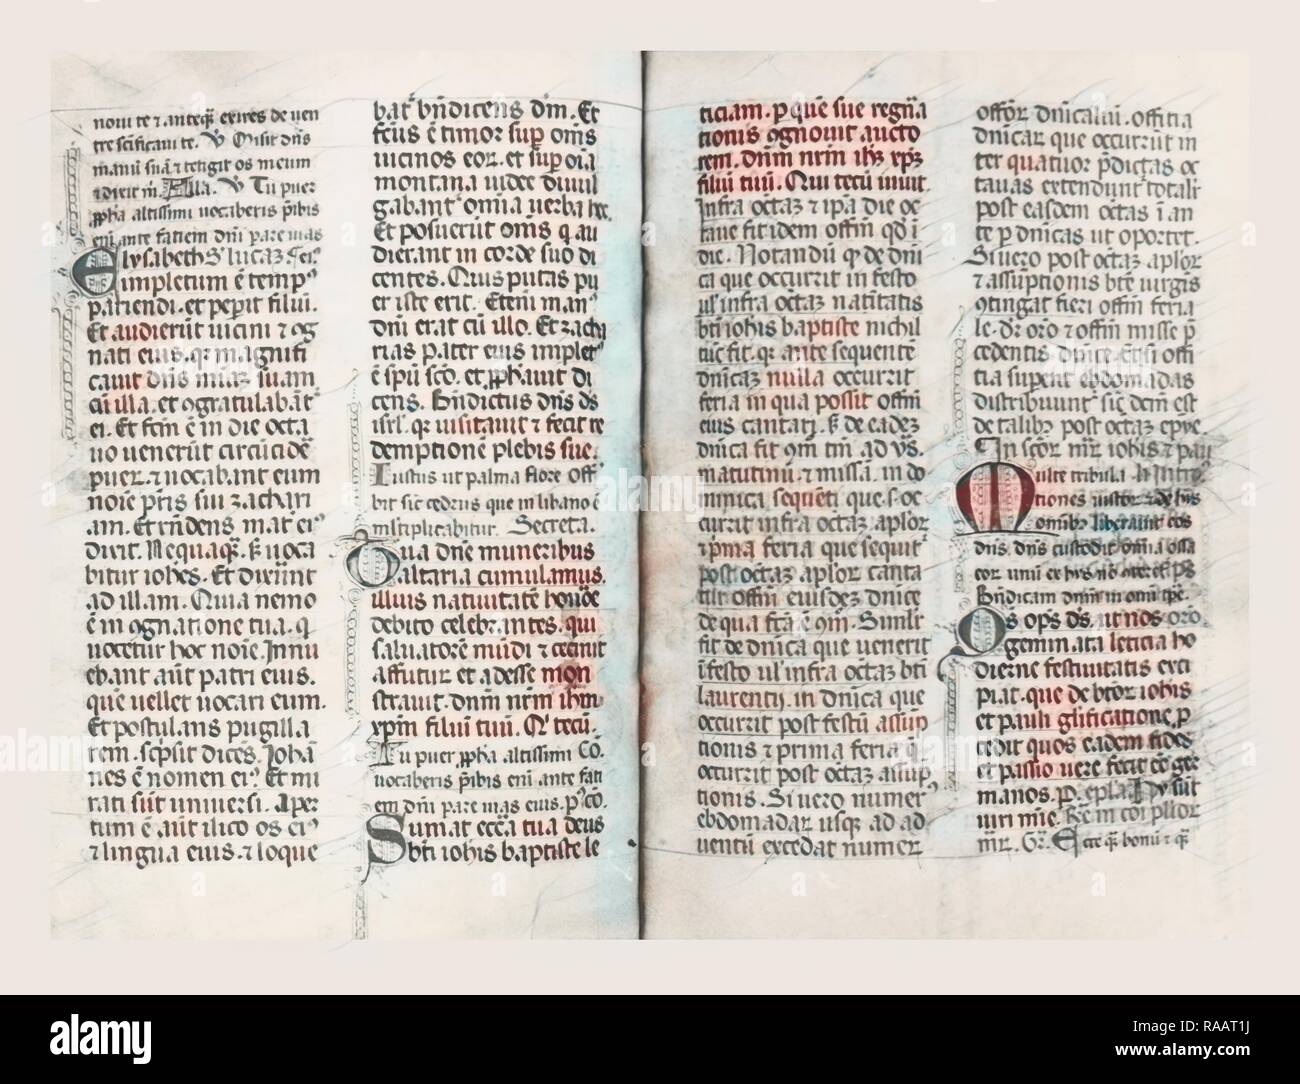 noui te ⁊ anteq̃ exires de uen
tre sc̃ificaui te. ℣ Misit dn̄s
manū suā ⁊ tetigit os meum
⁊ dixit m̄. Alla. ℣ Tu puer
ꝓpha altissimi uocaberis p̄ibis
eni᷒ ante faciem dn̄i parare uias
Elysabeth S lucaꝫ
impletum ē temp᷒
pariendi. et peꝑit filiū.
Et audierūt uicini ⁊ ꝯg
nati eius. qꝛ magnifi
cauit dn̄s miāꝫ suam
cū illa. et ꝯgratulabāt᷑
ei. Et fcm̄ ē in die octa
uo uenerūt circūcidē
puer. ⁊ uocabant eum
noīe p̄ris sui zachari
am. Et rn̄dens mat ei᷒
dixit. Nequaq̃. s̄ uoca
bitur iohēs. Et dixerūt
ad illam. Quia nemo
ē in ꝯgnatione tua. q
uocetur hoc noīe. Innu
ebant aūt patri eius.
quē uellet uocari eum.
Et postulans pugilla
rem. scrp̄sit dicēs. Iohā
nes ē nomen ei᷒. Et mi
rati sūt uniuersi. Aper
tum ē aūt ilico os ei᷒
⁊ lingua eius. ⁊ loque
bat᷑ bn̄dicens dm̄. Et
fc̄us ē timor suꝑ om̄s
uicinos eoꝝ. et suꝑ oīa
montana iudee diuul
gabant᷑ omīa uerba hec.
Et posuerūt om̄s q au
dierant in corde suo di
centes. Quis putas pu
er iste erit. Eteni᷒ man᷒
dn̄i erat cū illo. Et zacha
rias pater eius implet᷒
ē sp̄u sc̄o. et ꝓphauit di
cens. Bn̄dictus dn̄s d̄s
isrl. qꝛ uisitauit ⁊ fecit re
demptionē plebis sue.
Iustus ut palma flore. Off
bit sic̄ cedrus que in libano ē
ml̄tiplicabitur. Secreta.
Tua dn̄e muneribus
altaria cumulamus.
illius natiuitatē honōe
debito celebrantes. qui
saluatorē mūdi ⁊ cecinit
affutur et adesse mon
strauit. dnm̄ nrm̄ ihm̄
xp̄m filiū tuū. Q᷑ tecū.
Tu puer ꝓpha altissimi Cō.
uocaberis p̄ibis eni᷒ ante faci
em dn̄i parare uias eius. P᷒ cō.
Sumat eccl̄ia tua deus
bt̄i iohis baptiste le
ticiam. p quē sue regn̄a
tionis ꝯgnouit aucto
rem. Dnm̄ nrm̄ ihꝫ xp̄ꝫ
filiū tuū. Qui tecū uiuit.
Infra octaꝫ ⁊ ip̄a die oc
taue fit idem offm̄ qd̄ ī
die. Notandū qꝫ de dn̄i
ca que occurrit in festo
ul᷑ infra octaꝫ natitatis
bt̄i iohis baptiste nichil
tūc fit. qꝛ ante sequentē
dn̄icaꝫ nulla occurrit
feria in qua possit offm̄
eius cantari. s̄ de eadeꝫ
dn̄ica fit om̄ tm̄. ad vs̄.
matutinū ⁊ missā. in do
minica seque̅ti que. s. oc
currit infra octaꝫ aplo̅ꝝ
⁊ prima feria que sequit᷑
post octaꝫ aplo̅ꝝ canta
tur offm̄ eiusdeꝫ dn̄ice
de qua fc̄a ē om̄. Similr̄
fit de dn̄ica que uenerit
ī festo ul᷑ infra octaꝫ bt̄i
laurentij. in dn̄ica que
occurrit post festū assup
tionis ⁊ prima feria q̄
occurrit post octaꝫ assup
tionis. Si uero numer᷒
ebdomadaꝝ usqꝫ ad ad
uentū excedat numer
offoꝝ dn̄icaliū. officia
dn̄icaꝝ que occurrūt in
ter quatuor p̄dictas oc
tauas extendunt totalr̄
post easdem octas ī an
te p dn̄icas ut oportet.
Si uero post octaꝫ aplo̅ꝝ
⁊ assūptionis bt̄e uirgis
ꝯtingat fieri offm̄ feria
le. dr̄ oro̅ ⁊ offm̄ misse p̄
cedentis dn̄ice. Et si offi
cia suꝑent ebdomadas
distribuunt᷑ sic̄ dcm̄ est
de talibꝫ post octaꝫ epye.
In sc̄oꝝ mr̄ꝝ iohis ⁊ pau
Multe tribula. Introi᷒
tiones iustoꝝ ⁊ de hiis
omibꝫ liberauit eos
dn̄s. dn̄s custodit om̄ia ossa
eoꝝ unū ex hijs nō p᷒s
Bn̄dicam dnm̄ in om̄i tp̄e.
Qs om̄ps ds̄. ut nos oro
gemināta leticia ho
dierne festiuitatis exci
piat. que de btoꝝ iohis
et pauli gl̄ificatione ꝓ
cedit quos eadem fides
et passio uere fecit ee̅ ger
manos. P. ep̄la. Hij sunt
uiri mie. Req̄ in coi pl̄ioꝝ
mr̄ꝝ. Gr̄. Ecce q̃ bonū ⁊ q̃